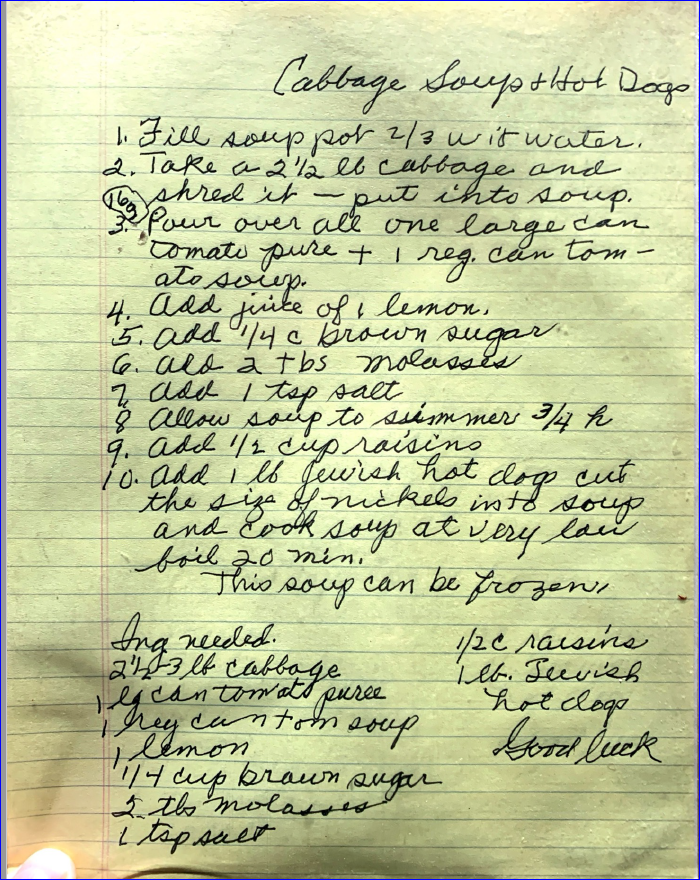 Cabbage Soup + Hot Dogs
1. Fill soup pot 2/3 wit water.
2. Take a 2 1/2 lb cabbage and
shred it — put into soup.
16oz
3. Pour over all one large can
tomato pure + 1 reg. can tom-
ato soup.
4. Add juice of 1 lemon.
5. Add 1/4 c brown sugar
6. Add 2 tbs molasses
7. Add 1 tsp salt
8 Allow soup to simmer 3/4 h
9. Add 1/2 cup raisins
10. Add 1 lb Jewish hot dogs cut
the size of nickels into soup
and cook soup at very low
boil 20 min.
This soup can be frozen.
Ing needed.
2 1/2-3 lb cabbage
1 lg can tomato puree
1 reg can tom soup
1 lemon
1/4 cup brown sugar
2 tbs molasses
1 tsp salt
1/2 c raisins
1 lb. Jewish
hot dogs
Good luck